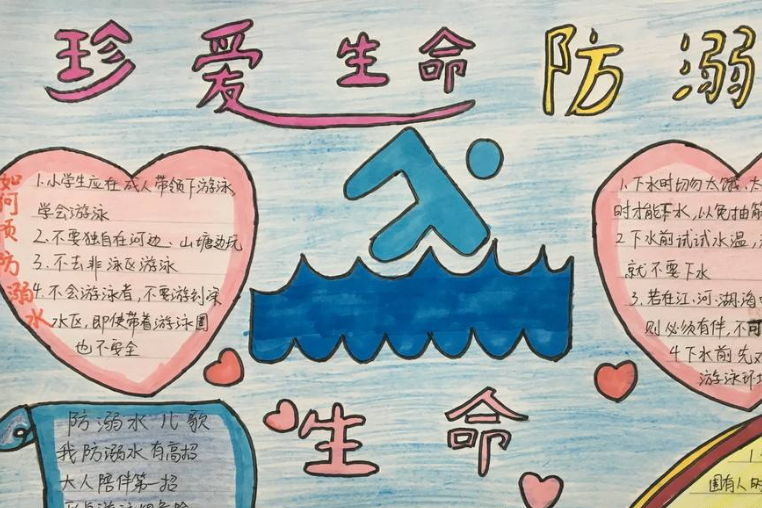 珍爱生命 防溺
如何预防溺水
1.小学生应在成人带领下游泳,
学会游泳
2.不要独自在河边、山塘边玩
3.不去非泳区游泳
4.不会游泳者,不要游到深
水区,即使带着游泳圈
也不安全
1.下水时切勿太饿、太
时才能下水,以免抽筋
2下水前试试水温,
就不要下水
3.若在江、河、湖、海
则必须有伴,不可
4下水前先
游泳环境
生命
防溺水儿歌
我防溺水有高招
大人陪伴第一招
围有人时